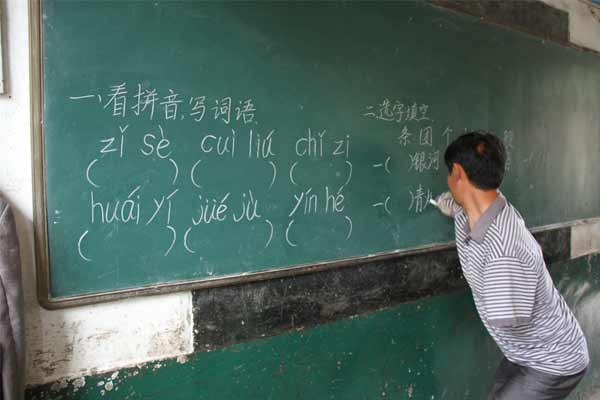 一、看拼音,写词语.
zǐ sè cuì liú chǐ zi
( ) ( ) ( )
huái yí jüé jù yín hé
( ) ( ) ( )
二、选字填空.
条 团 个
一( )银河
一( )清